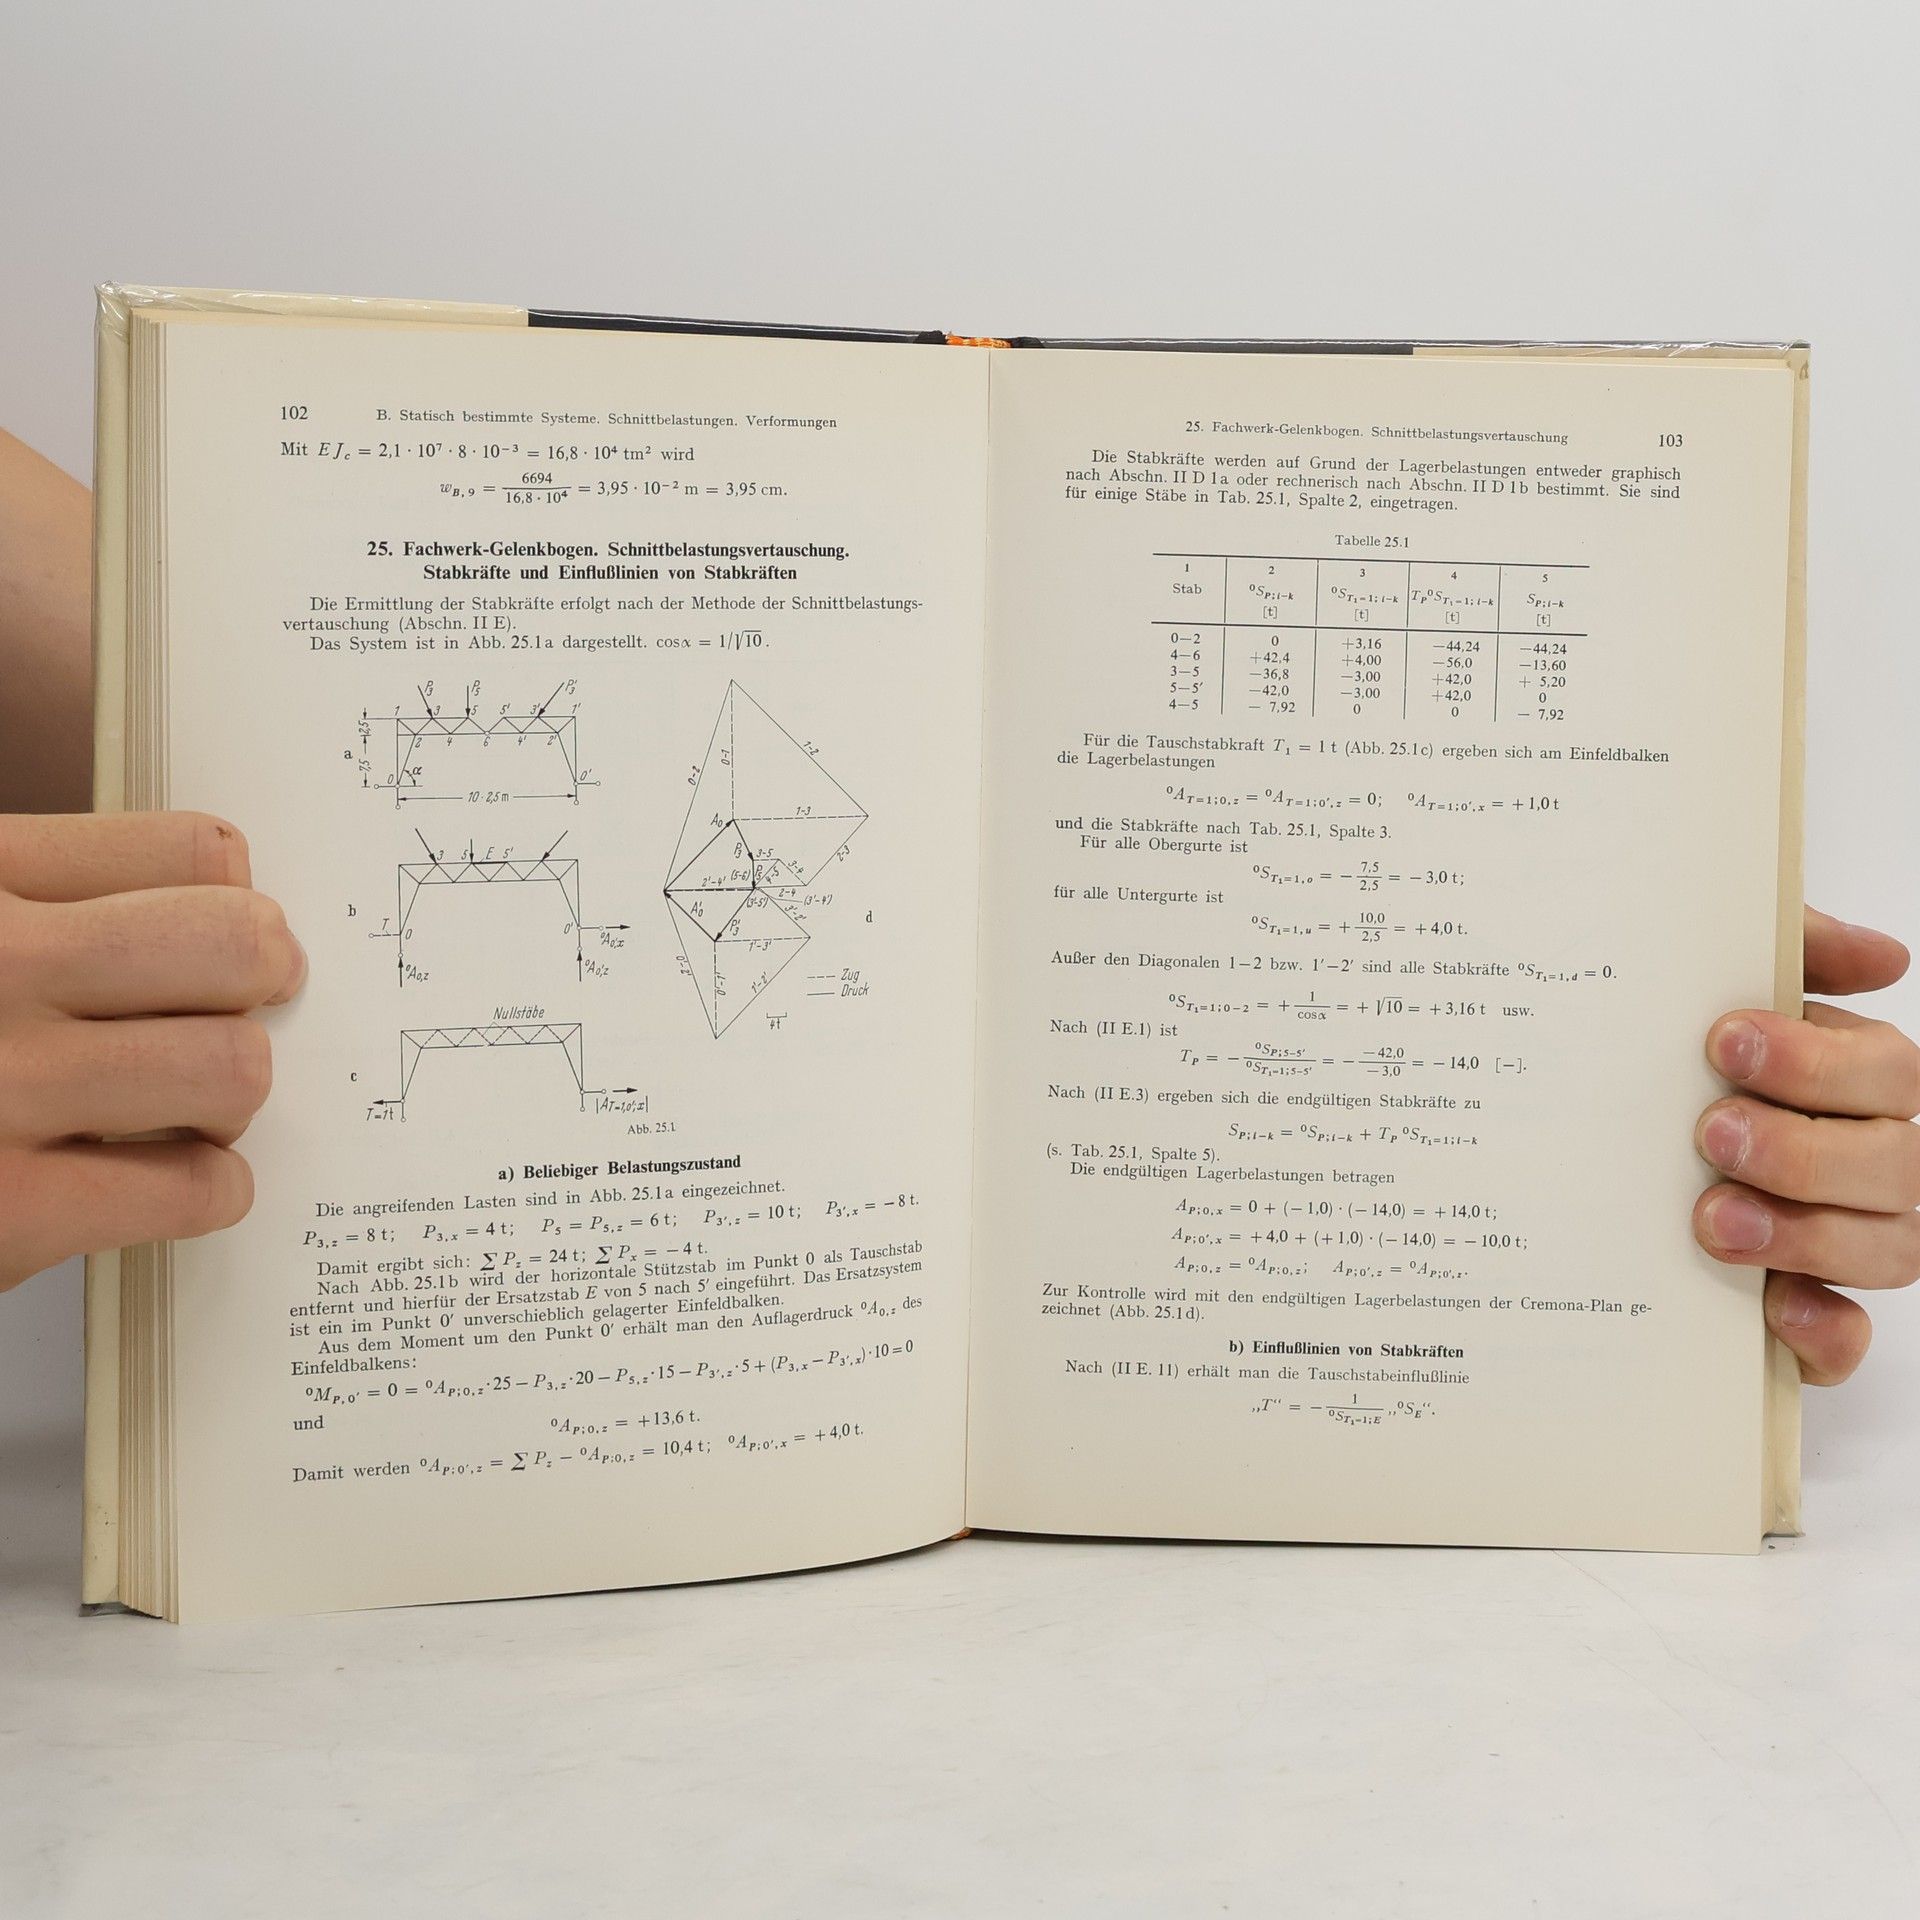 102 B. Statisch bestimmte Systeme. Schnittbelastungen. Verformungen
Mit E J_c = 2,1 · 10⁷ · 8 · 10⁻³ = 16,8 · 10⁴ tm² wird
w_{B,9} = 6694 / 16,8 · 10⁴ = 3,95 · 10⁻² m = 3,95 cm.
25. Fachwerk-Gelenkbogen. Schnittbelastungsvertauschung.
Stabkräfte und Einflußlinien von Stabkräften
Die Ermittlung der Stabkräfte erfolgt nach der Methode der Schnittbelastungs-
vertauschung (Abschn. II E).
Das System ist in Abb. 25.1a dargestellt. cosα = 1/√10.
P₃ P₅ P₃′
1 3 5 5′ 3′ 1′
2 4 6 4′ 2′
2,5
7,5
a
0 α 0′
10·2,5m
3 5 E 5′
b
T 0 0′ ⁰A_{0′,x}
⁰A_{0,z} ⁰A_{0′,z}
Nullstäbe
c
T=1t |A_{T=1,0′;x}|
0-2 0-1 1-2
A₀ 1-3
P₃ 3-5 3-4 2-3
2′-4′ (5-6) P₅ 2-4
(3′-5′) (3′-4′)
A₀′ P₃′
1′-3′
1′-2′
d
Zug
Druck
4t
Abb. 25.1
a) Beliebiger Belastungszustand
Die angreifenden Lasten sind in Abb. 25.1a eingezeichnet.
P_{3,z} = 8 t; P_{3,x} = 4 t; P₅ = P_{5,z} = 6 t; P_{3′,z} = 10 t; P_{3′,x} = − 8 t.
Damit ergibt sich: ∑ P_z = 24 t; ∑ P_x = − 4 t.
Nach Abb. 25.1b wird der horizontale Stützstab im Punkt 0 als Tauschstab
entfernt und hierfür der Ersatzstab E von 5 nach 5′ eingeführt. Das Ersatzsystem
ist ein im Punkt 0′ unverschieblich gelagerter Einfeldbalken.
Aus dem Moment um den Punkt 0′ erhält man den Auflagerdruck ⁰A_{0,z} des
Einfeldbalkens:
⁰M_{P,0′} = 0 = ⁰A_{P;0,z}·25 − P_{3,z}·20 − P_{5,z}·15 − P_{3′,z}·5 + (P_{3,x} − P_{3′,x})·10 = 0
und
⁰A_{P;0,z} = +13,6 t.
Damit werden ⁰A_{P;0′,z} = ∑ P_z − ⁰A_{P;0,z} = 10,4 t; ⁰A_{P;0′,x} = +4,0 t.
25. Fachwerk-Gelenkbogen. Schnittbelastungsvertauschung 103
Die Stabkräfte werden auf Grund der Lagerbelastungen entweder graphisch
nach Abschn. II D 1a oder rechnerisch nach Abschn. II D 1b bestimmt. Sie sind
für einige Stäbe in Tab. 25.1, Spalte 2, eingetragen.
Tabelle 25.1
1 2 3 4 5
Stab ⁰S_{P;i−k} ⁰S_{T₁=1;i−k} T_P⁰S_{T₁=1;i−k} S_{P;i−k}
[t] [t] [t] [t]
0−2 0 +3,16 −44,24 −44,24
4−6 +42,4 +4,00 −56,0 −13,60
3−5 −36,8 −3,00 +42,0 + 5,20
5−5′ −42,0 −3,00 +42,0 0
4−5 − 7,92 0 0 − 7,92
Für die Tauschstabkraft T₁ = 1 t (Abb. 25.1c) ergeben sich am Einfeldbalken
die Lagerbelastungen
⁰A_{T=1;0,z} = ⁰A_{T=1;0′,z} = 0; ⁰A_{T=1;0′,x} = +1,0 t
und die Stabkräfte nach Tab. 25.1, Spalte 3.
Für alle Obergurte ist
⁰S_{T₁=1,o} = − 7,5 / 2,5 = − 3,0 t;
für alle Untergurte ist
⁰S_{T₁=1,u} = + 10,0 / 2,5 = + 4,0 t.
Außer den Diagonalen 1−2 bzw. 1′−2′ sind alle Stabkräfte ⁰S_{T₁=1,d} = 0.
⁰S_{T₁=1;0−2} = + 1 / cosα = + √10 = + 3,16 t usw.
Nach (II E.1) ist
T_P = − ⁰S_{P;5−5′} / ⁰S_{T₁=1;5−5′} = − −42,0 / −3,0 = − 14,0 [−].
Nach (II E.3) ergeben sich die endgültigen Stabkräfte zu
S_{P;i−k} = ⁰S_{P;i−k} + T_P ⁰S_{T₁=1;i−k}
(s. Tab. 25.1, Spalte 5).
Die endgültigen Lagerbelastungen betragen
A_{P;0,x} = 0 + (− 1,0) · (− 14,0) = + 14,0 t;
A_{P;0′,x} = + 4,0 + (+ 1,0) · (− 14,0) = − 10,0 t;
A_{P;0,z} = ⁰A_{P;0,z}; A_{P;0′,z} = ⁰A_{P;0′,z}.
Zur Kontrolle wird mit den endgültigen Lagerbelastungen der Cremona-Plan ge-
zeichnet (Abb. 25.1d).
b) Einflußlinien von Stabkräften
Nach (II E. 11) erhält man die Tauschstabeinflußlinie
„T“ = − 1 / ⁰S_{T₁=1;E} „⁰S_E“.